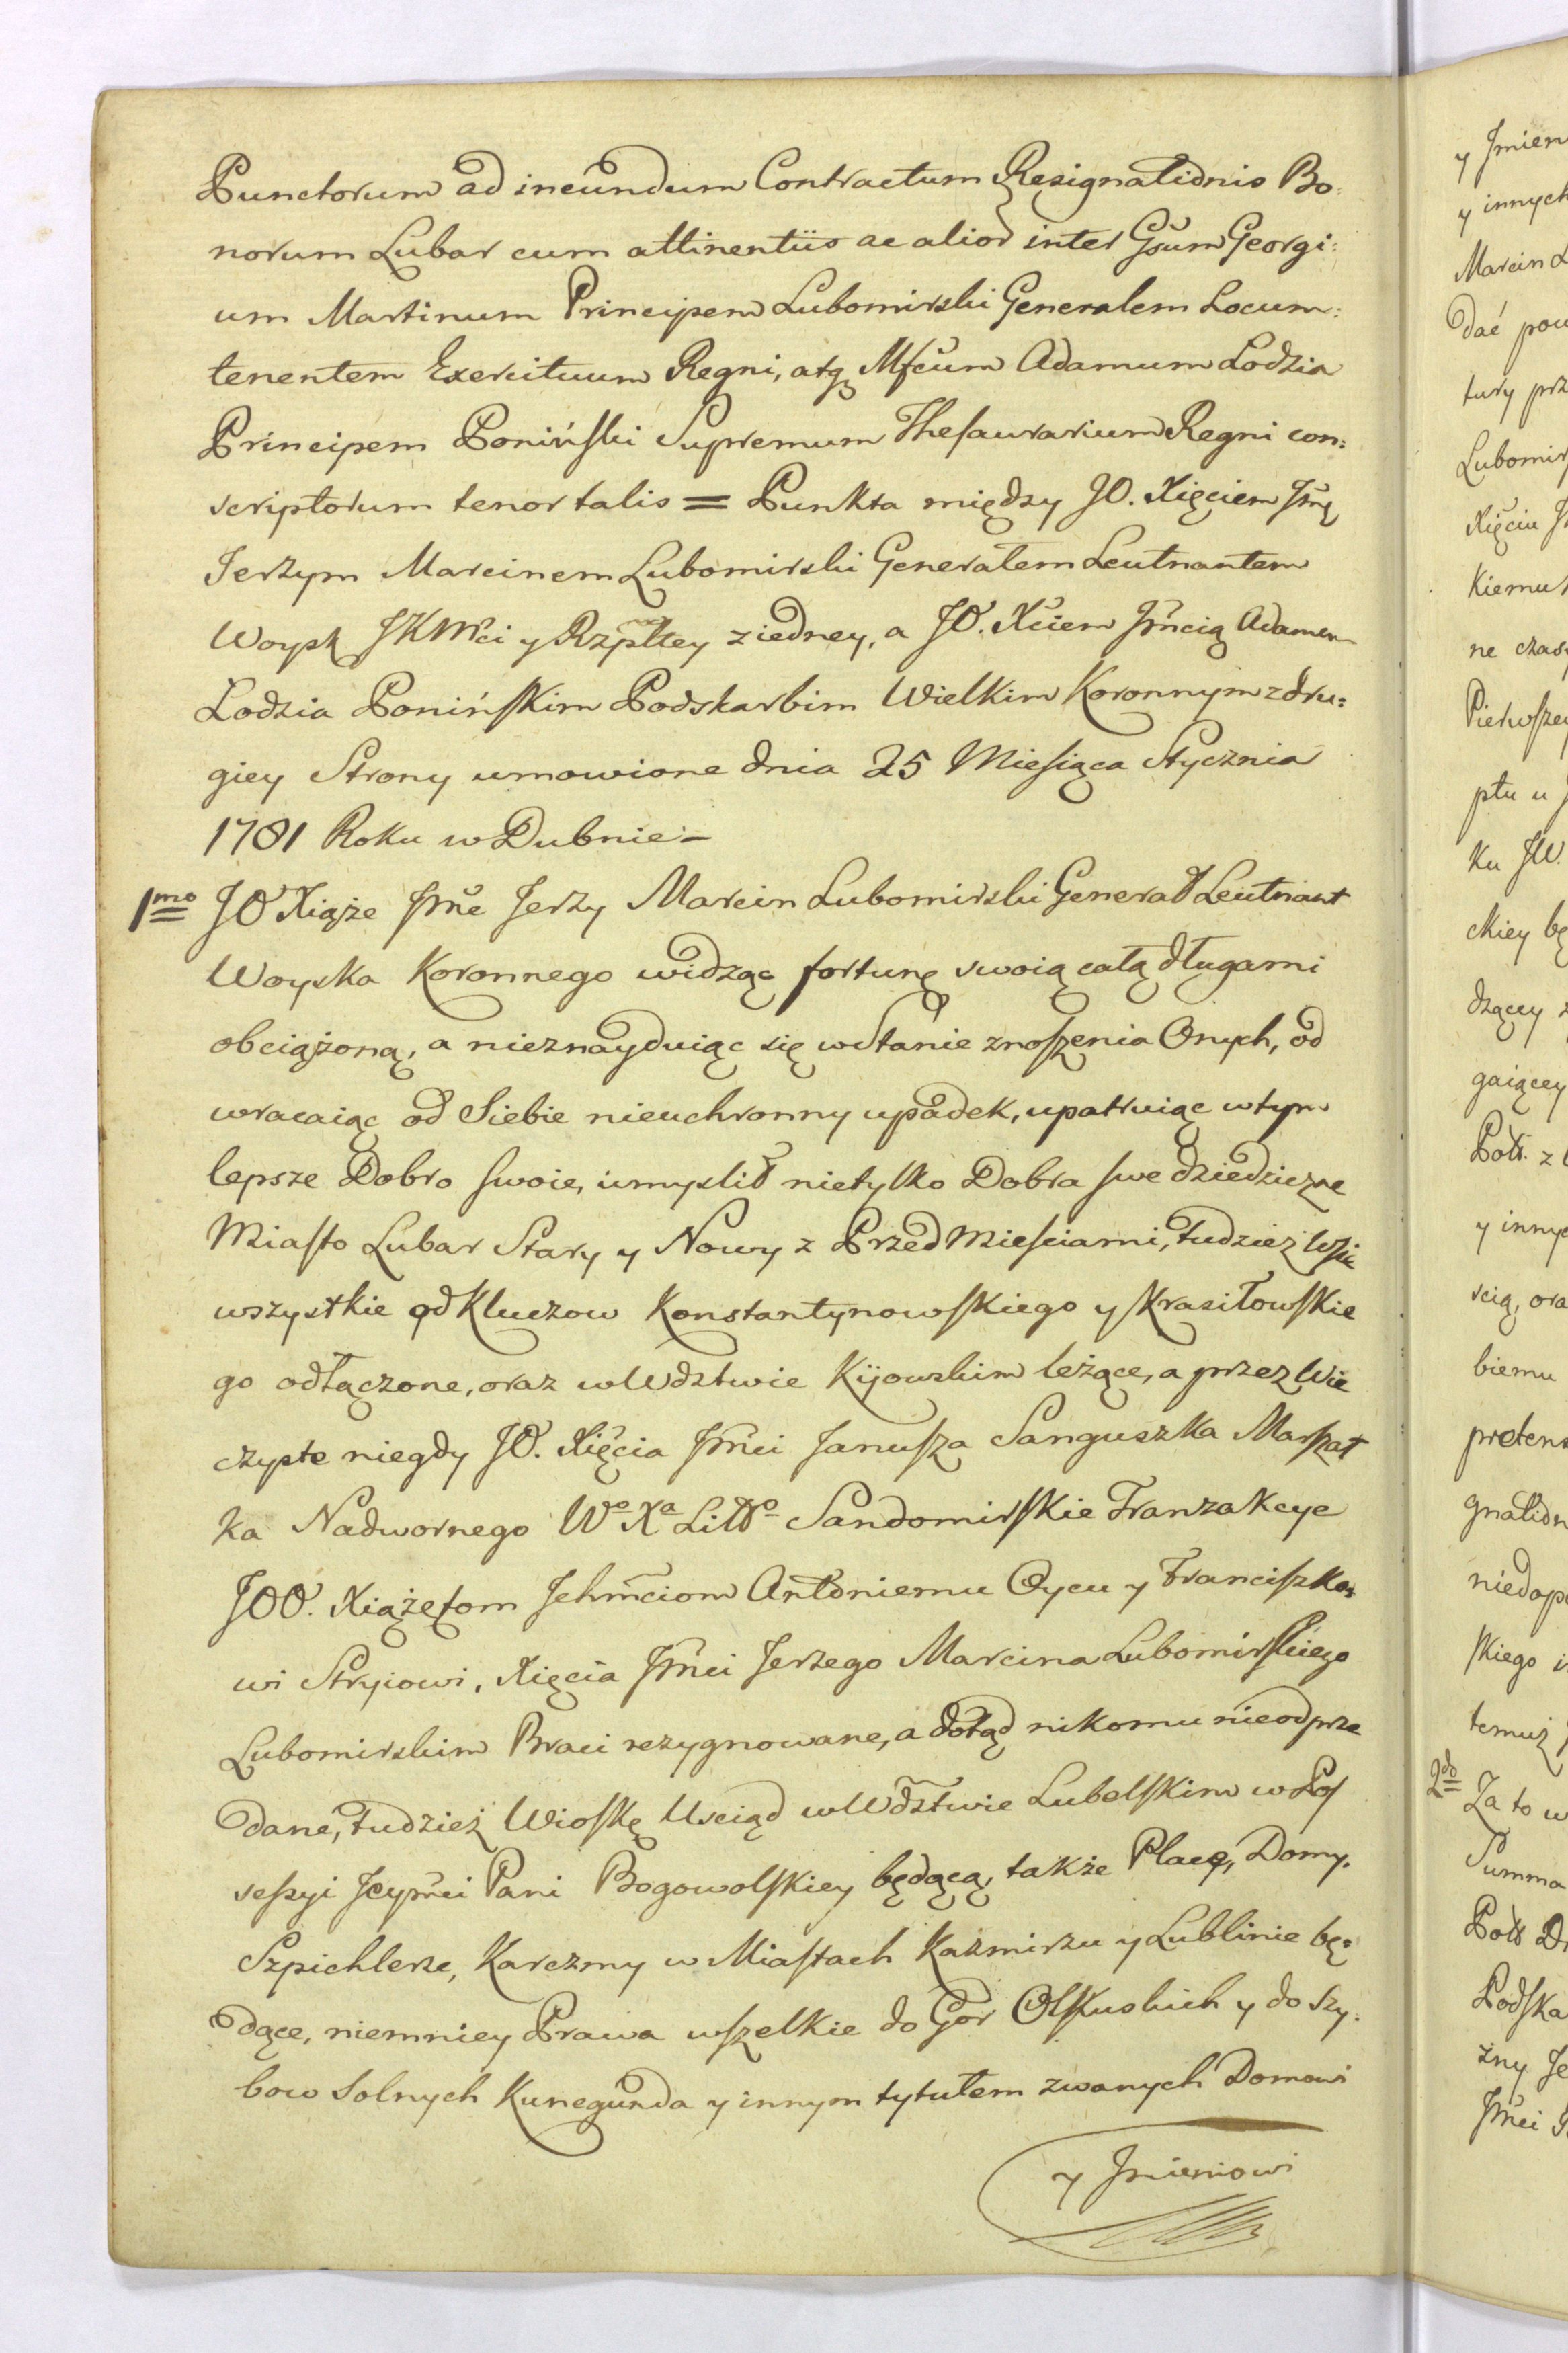 Punctorum ad ineundum Contractum Resignationis Bo:
norum Lubar cum attinentiis ac alior inter Gsum Georgi:
um Martinum Principem Lubomirski Generalem Locum:
tenentem Exercituum Regni, atq Mfcum Adamum Lodzia
Principem Poniński Supremum Thesaurarium Regni con:
scriptorum tenor talis = Punkta między JO. Xięciem Jmę
Jerzym Marcinem Lubomirski Generałem Leutnantem
Woysk JKMci y Rzpltey z iedney, a JO. Xciem Jmcią Adamem
Lodzia Ponińskim Podskarbim Wielkim Koronnym z dru:
giey Strony umowione dnia 25 Miesiąca Stycznia
1781 Roku w Dubnie –
1mo JO Xiąże Jmc Jerzy Marcin Lubomirski Generał Leutnant
Woyska Koronnego widząc fortunę swoią całą długami
obciążoną, a nieznayduiąc się w Stanie znoszenia Onych, od
wracaiąc od Siebie nieuchronny upadek, upatruiąc w tym
lepsze Dobro swoie, umyslił nietylko Dobra swe dziedziczne
Miasto Lubar Stary y Nowy z Przed Miesciami, Tudzież Wsie
wszystkie od Kluczow Konstantynowskiego y Krasiłowskie
go odłączone, oraz w Wdztwie Kijowskim leżące, a przez Wie
czyste niegdy JO. Xięcia Jmci Janusza Sanguszka Marszał
ka Nadwornego Wo Xa Litto Sandomirskie Tranzakcye
JOO. Xiążętom Jchmciom Antoniemu Oycu y Franciszko:
wi Stryiowi, Xięcia Jmci Jerzego Marcina Lubomirskiego
Lubomirskim Braci rezygnowane, a dotąd nikomu nieodprze
dane, Tudzież Wioskę Usciąd w Wdztwie Lubelskim w Pos
sessyi Jeymci Pani Bogowolskiey będącą, także Place, Domy,
Szpichlerze, Karczmy w Miastach Kazmirzu y Lublinie bę:
dące, niemniey Prawa wszelkie do Gor Olkuskich y do Szy:
bow Solnych Kunegunda y innym tytułem zwanych Domowi
y Jmieniowi
y Jmien
y innych
Marcin L
dać pow
tury prz
Lubomir
Xięciu J
Kiemu
ne czasy
Pierwszey
ptu u J
ku JW.
ckiey bę
dzącey z
gaiącey
Polt. z
y innyc
scią, ora
biemu
pretens
gnation
niedop
skiego i
temuż
2do Za to w
Summa
Polt D
Podska
żny Je
Jmci